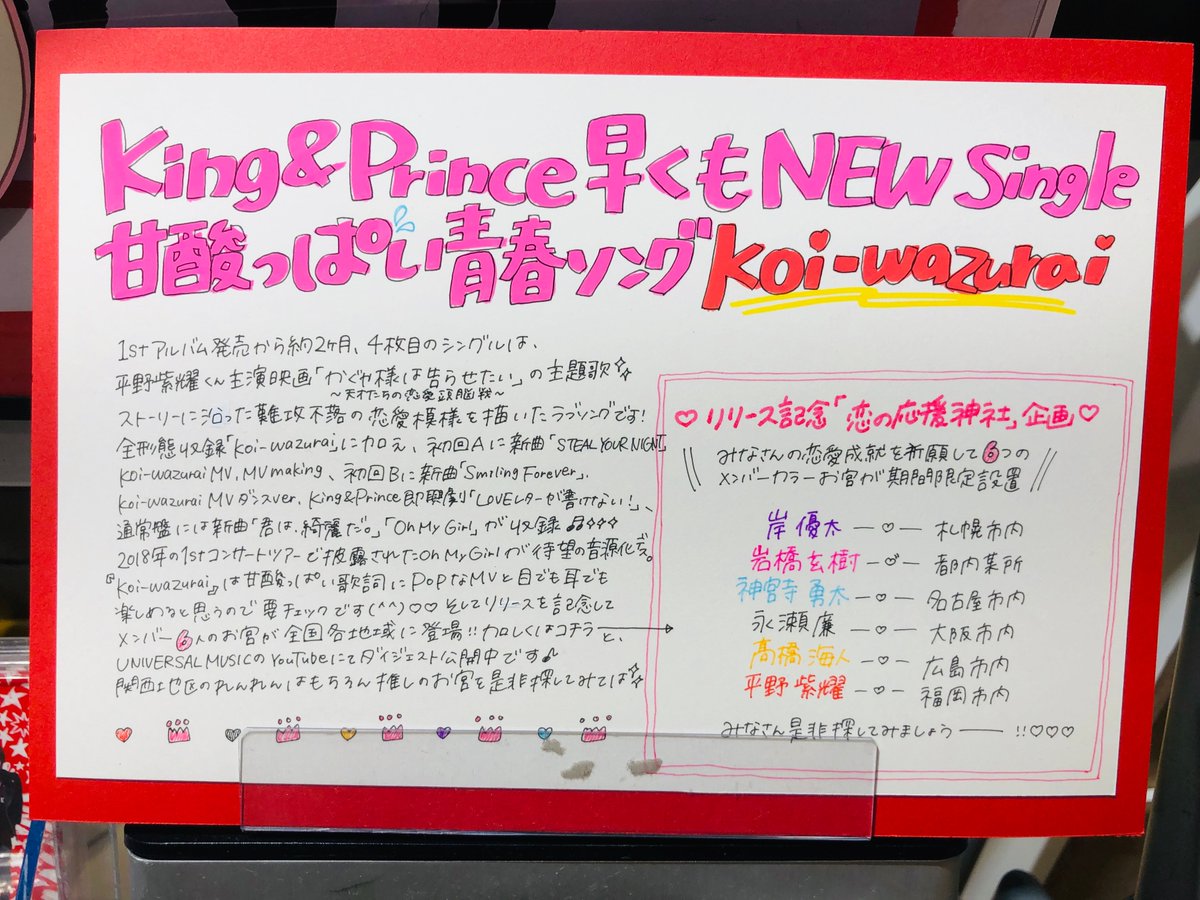 King&Prince 早くも NEW Single
甘酸っぱい青春ソング koi-wazurai
1stアルバム発売から約2ヶ月、4枚目のシングルは、
平野紫耀くん主演映画「かぐや様は告らせたい」の主題歌
～天才たちの恋愛頭脳戦～
ストーリーに沿った難攻不落の恋愛模様を描いたラブソングです!
全形態収録「koi-wazurai」に加え、初回Aに新曲「STEAL YOUR NIGHT」
koi-wazurai MV, MV making、初回Bに新曲「Smiling Forever」、
koi-wazurai MV ダンスver、King&Prince即興劇「LOVEレターが書けない!」、
通常盤には新曲「君は、綺麗だ。」「Oh My Girl」が収録♫
2018年の1stコンサートツアーで披露されたOh My Girlが待望の音源化で。
『koi-wazurai』は甘酸っぱい歌詞にPOPなMVと目でも耳でも
楽しめると思うので要チェックです(^^)♡♡ そしてリリースを記念して
メンバー6人のお宮が全国各地域に登場!! 詳しくはコチラ→と、
UNIVERSAL MUSICのYouTubeにてダイジェスト公開中です♪
関西地区のれんれんはもちろん推しのお宮を是非探してみては
♡リリース記念「恋の応援神社」企画♡
みなさんの恋愛成就を祈願して6つの
メンバーカラーお宮が期間限定設置
岸 優太 ―♡― 札幌市内
岩橋玄樹 ―♡― 都内某所
神宮寺 勇太 ―♡― 名古屋市内
永瀬廉 ―♡― 大阪市内
髙橋海人 ―♡― 広島市内
平野紫耀 ―♡― 福岡市内
みなさん是非探してみましょう―― !!♡♡♡